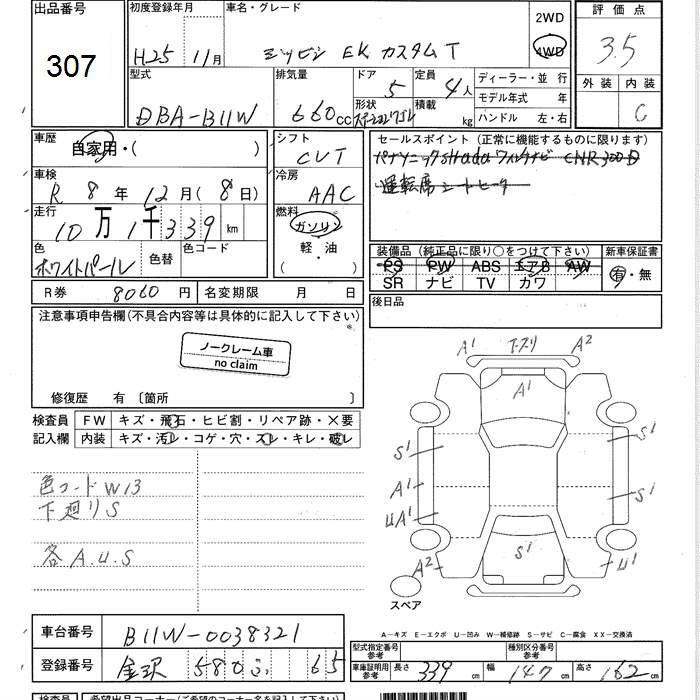 出品番号 初度登録年月 車名・グレード 2WD 評価点
307 H25年 11月 ミツビシ EK カスタム T 4WD 3.5
型式 排気量 ドア 5 定員 4人 ディーラー・並行 外装 内装
DBA-B11W 660cc 形状 積載 kg モデル年式 年 C
ハンドル 左・右
車歴 自家用・( ) シフト セールスポイント (正常に機能するものに限ります)
CVT パナソニック Strada ワイドナビ CNR300D
車検 R 8年 12月 (8日) 冷房 AAC 運転席シートヒーター
走行 10万1千339km 燃料 ガソリン
軽・油
色 ホワイトパール 色替 色コード 装備品 (純正品に限り○をつけて下さい) 新車保証書
PS PW ABS エアB AW 有・無
SR ナビ TV カワ
R券 8060円 名変期限 月 日 後日品
注意事項申告欄(不具合内容等は具体的に記入して下さい)
ノークレーム車
no claim
修復歴 有 〔箇所 〕
A1 A2
A1
検査員 FW キズ・飛石・ヒビ割・リペア跡・×要
記入欄 内装 キズ・汚レ・コゲ・穴・スレ・キレ・破レ
S1 S1
色コードW13 A1 S1
下廻りS UA1
各A.U.S S1
A2 U1
スペア
A-キズ E-エクボ U-凹み W-補修跡 S-サビ C-腐食 XX-交換済
車台番号 B11W-0038321
型式指定番号 参考 種別区分番号 参考
登録番号 金沢 580 ふ 65 車庫証明用 参考 長さ 339cm 幅 147cm 高さ 162cm
検査員 希望出品コーナー